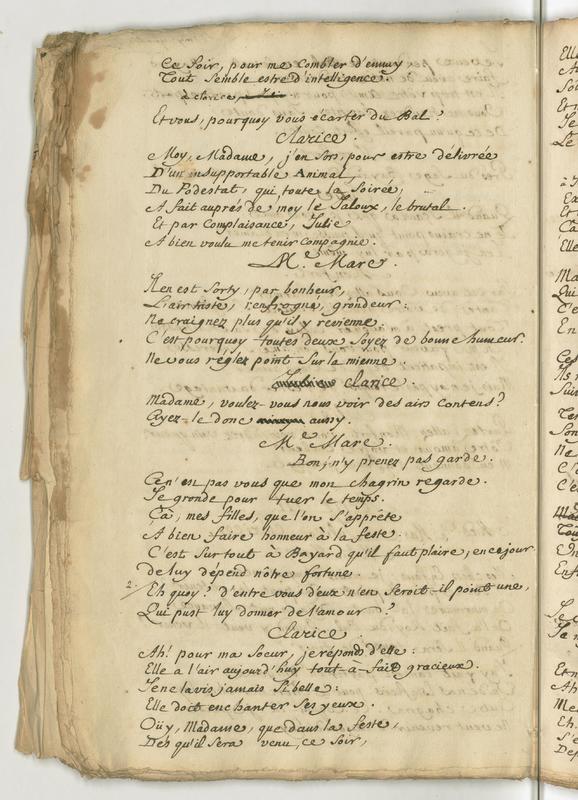 Ce Soir, pour me Combler d'ennuy,
Tout Semble estre d'intelligence.
à clarice
Et vous, pourquoy vous écarter du Bal?
Clarice.
Moy, Madame, j'en Sors, pour estre délivrée
D'un insupportable Animal,
Du Podestat, qui toute la Soirée,
A fait auprés de moy le Jaloux, le brutal.
Et par Complaisance, Julie
A bien voulu me tenir Compagnie.
Me. Mare.
Il en est Sorty, par bonheur,
L'air triste, renfrogné, grondeur:
Ne craignez plus qu'il y revienne.
C'est pourquoy toutes deux Soyez de bonne humeur.
Ne vous réglez point Sur la mienne.
clarice.
Madame, voulez-vous nous voir des airs contens?
Ayez-le donc aussy.
Me. Mare.
Bon, n'y prenez pas garde.
Ce n'est pas vous que mon chagrin regarde.
Je gronde pour tuer le temps.
Çà, mes filles, que l'on S'apprête
A bien faire honneur à la feste.
C'est Surtout à Bayard qu'il faut plaire, en ce jour
de luy dépend nôtre fortune.
2. Eh quoy? d'entre vous deux n'en Seroit-il point une,
Qui pust luy donner de l'amour?
Clarice
Ah! pour ma Soeur, je réponds d'elle:
Elle a l'air aujourd'huy tout-à-fait gracieux.
Je ne la vis jamais Si belle:
Elle doit enchanter Ses yeux.
Oüy, Madame, que dans la feste,
Dés qu'il Sera venu, ce Soir,